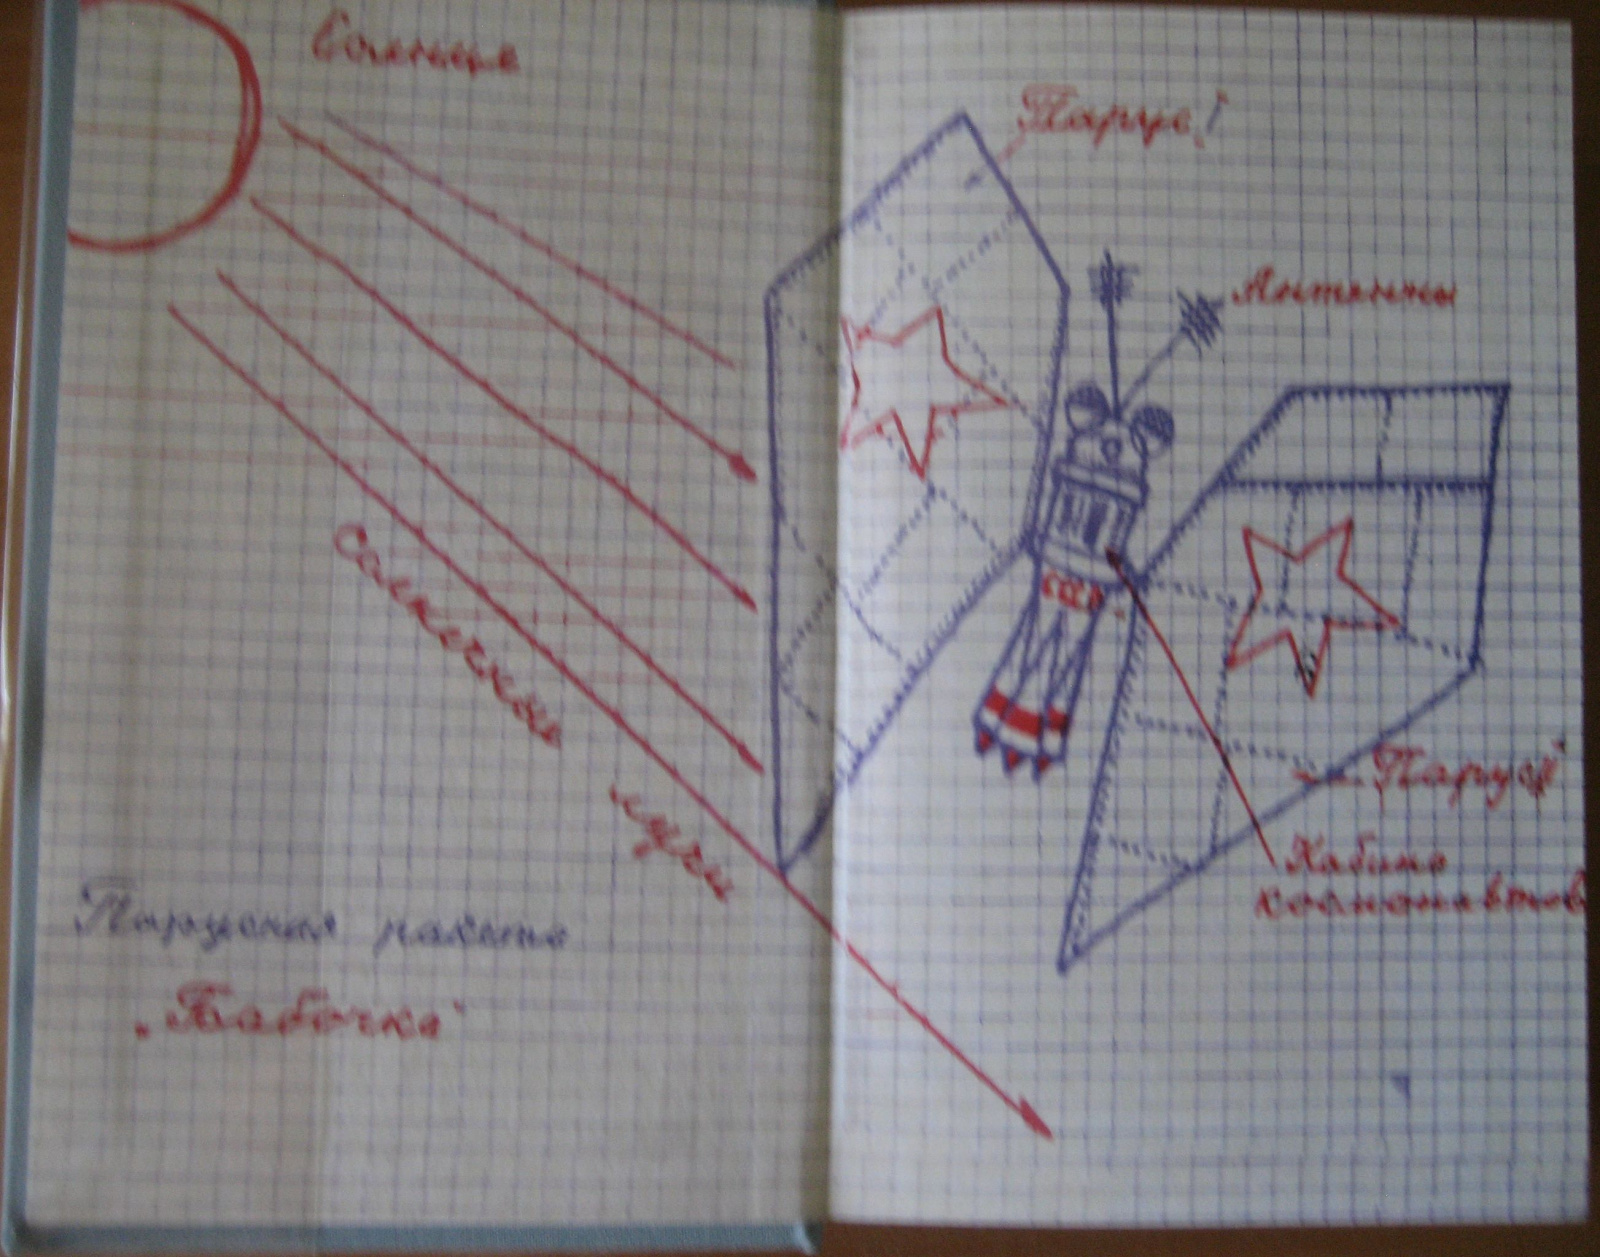 Солнце
Парус I
Антенны
солнечные
лучи
СССР
Парус II
Кабина
космонавтов
Парусная ракета
„Бабочка"